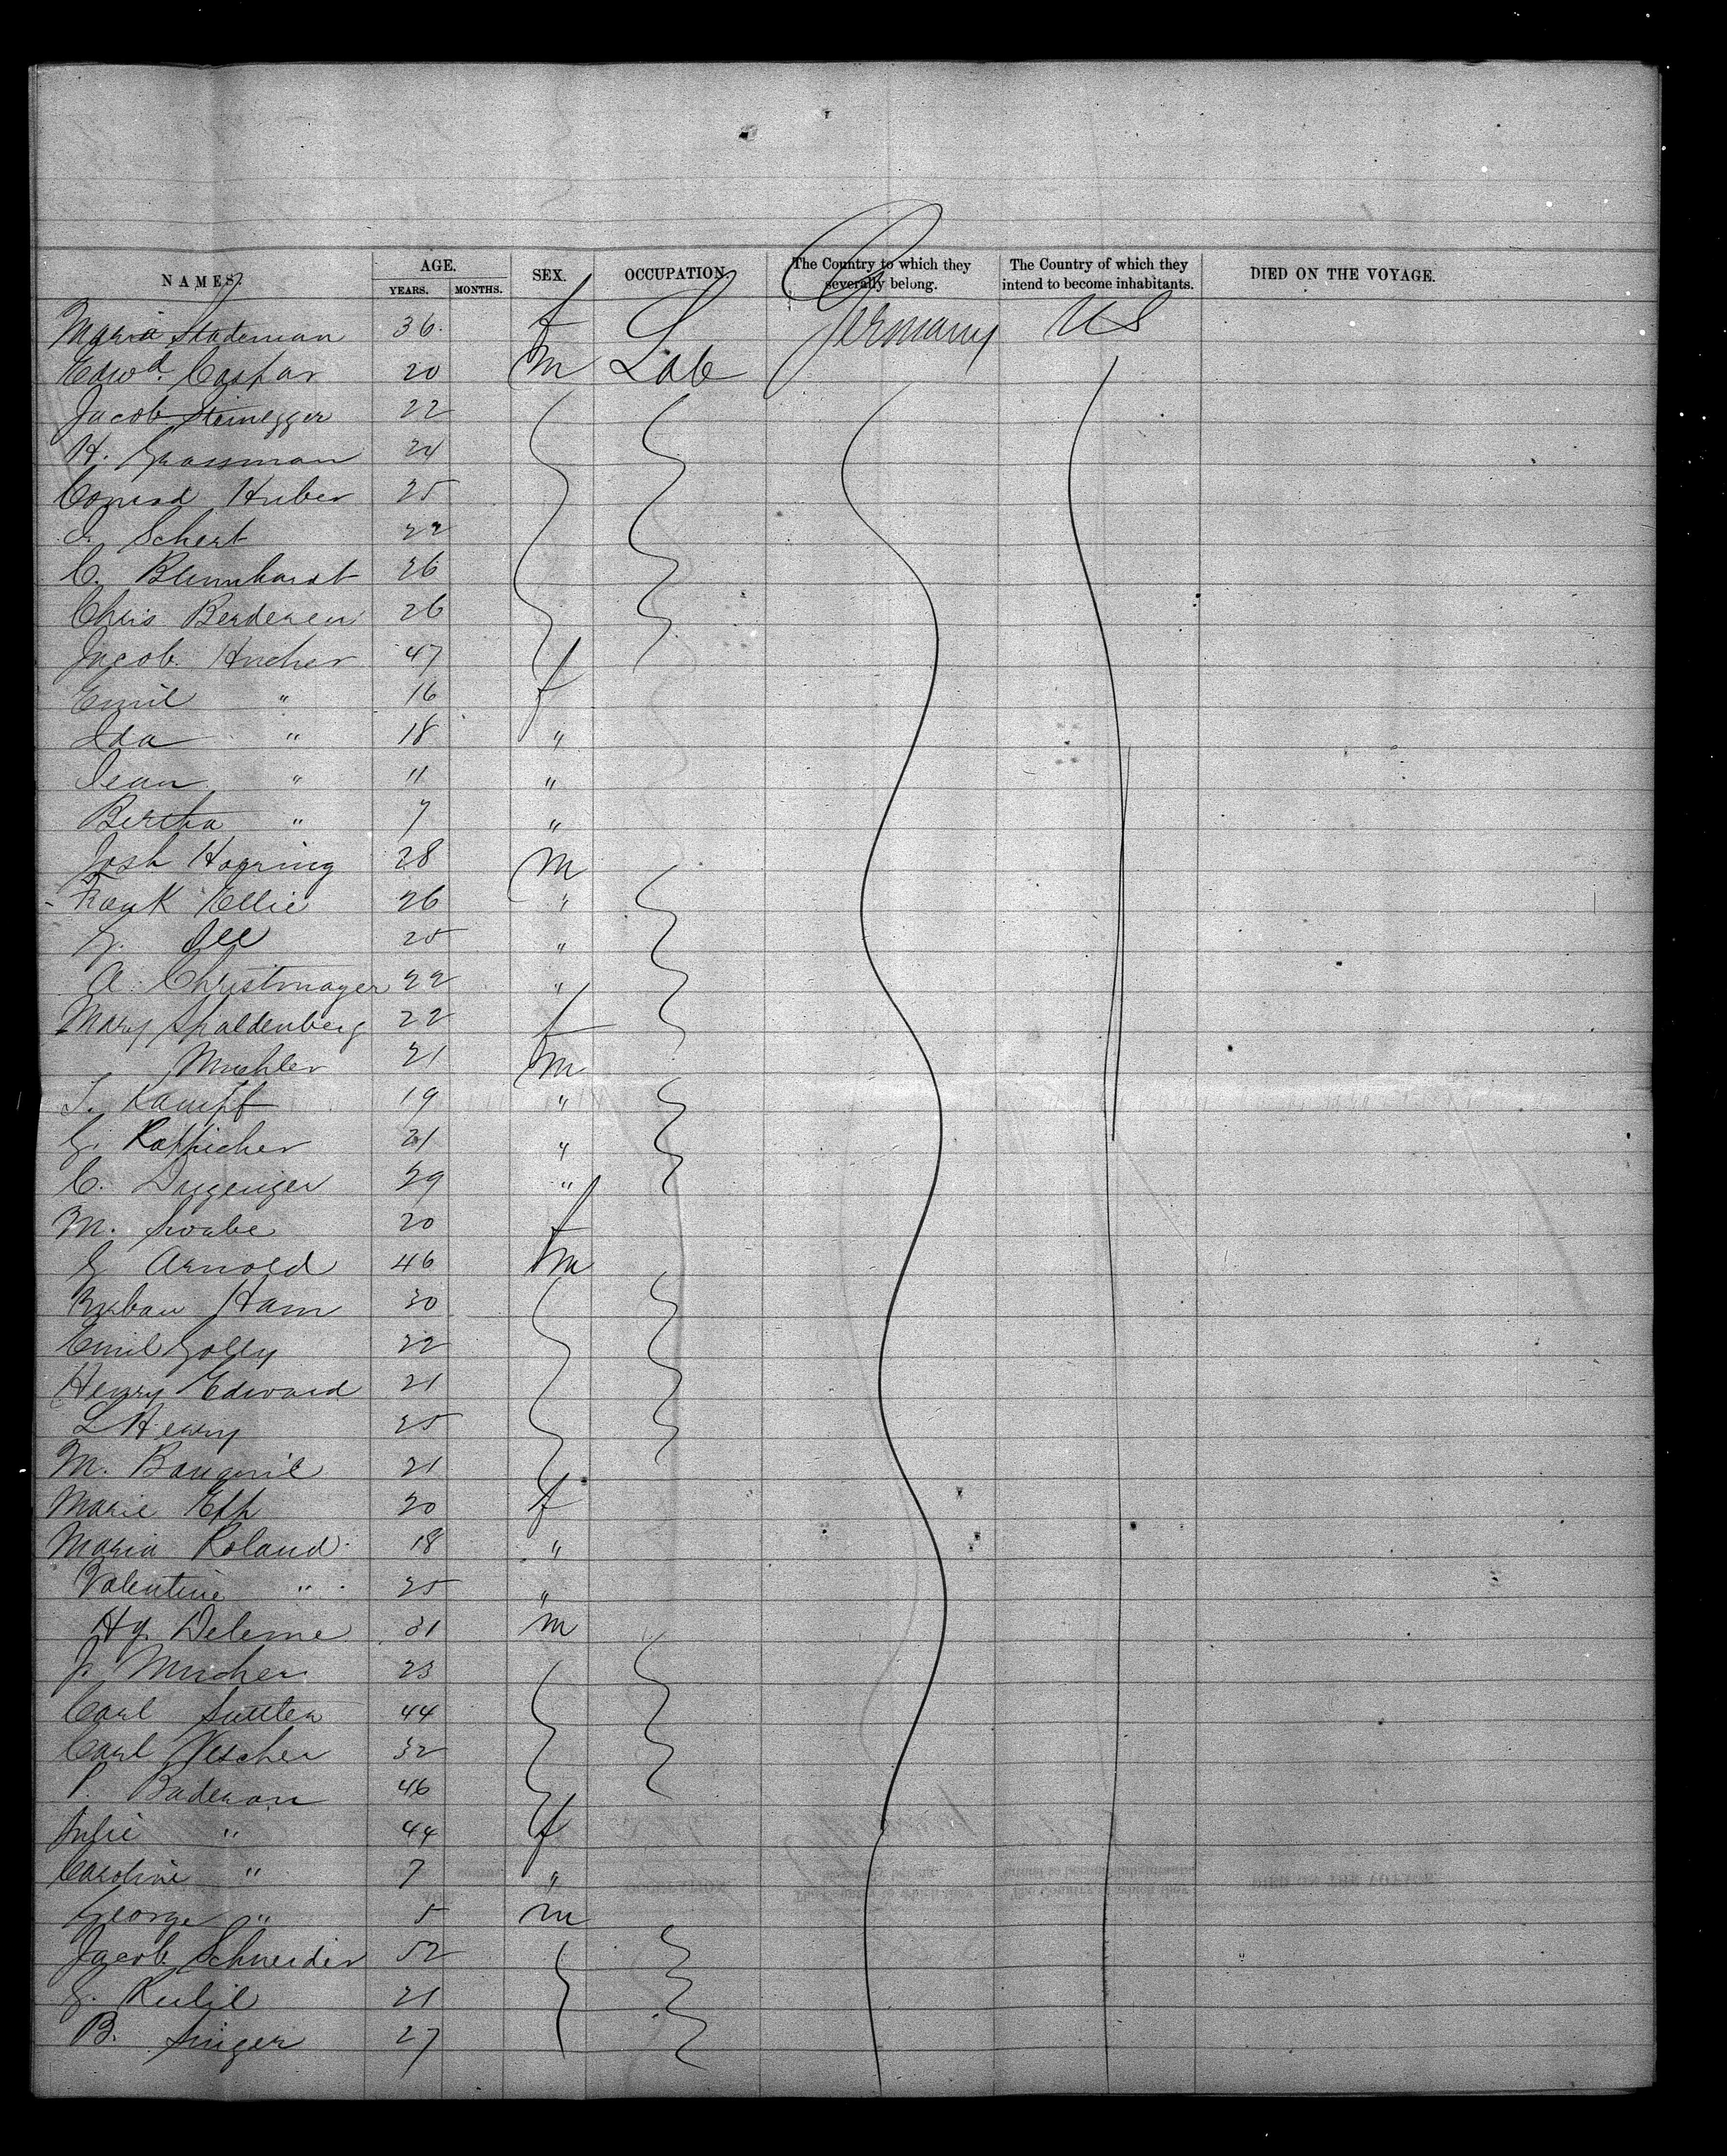 NAMES. AGE. SEX. OCCUPATION. The Country to which they severally belong. The Country of which they intend to become inhabitants. DIED ON THE VOYAGE.
YEARS. MONTHS.
Maria Stademan 36 f Germany US
Edwd. Caspar 20 m Lab
Jacob Steinegger 22
H. Grassman 24
Conrad Huber 25
Schert 22
C. Blumhardt 26
Chris Berderen 26
Jacob Hucher 47
Emil " 16 f
Ida " 18 "
Jean " 11 "
Bertha " 7 "
Josh Hagring 28 m
Frank Ellie 26 "
G. Ill 25 "
A. Christmayer 22 "
Mary Spaldenberg 22 f
Muehler 21 m
T. Kampf 19 "
G. Rappicher 21 "
C. 29 "
M. Swabe 20 f
G Arnold 46 m
Urban Ham 30
Emil Golly 22
Henry Edward 21
L Henry 25
M. 21
Marie Epp 20 f
Maria Roland 18 "
Valentine " 25 "
Hy. Deleme 31 m
J. Mucher 23
Carl Sutter 44
Carl Vescher 32
P. Baderan 46
Julie " 44 f
Caroline " 7 "
George " 5 m
Jacob Schneider 52
G. 21
B. Singer 27